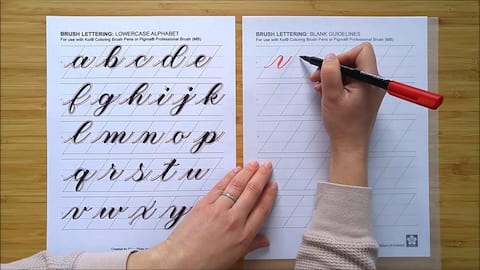 BRUSH LETTERING: LOWERCASE ALPHABET
For use with Koi® Coloring Brush Pens or Pigma® Professional Brush (MB)
a b c d e
f g h i j k
l m n o p
q r s t u
v w x y
BRUSH LETTERING: BLANK GUIDELINES
For use with Koi® Coloring Brush Pens or Pigma® Professional Brush (MB)